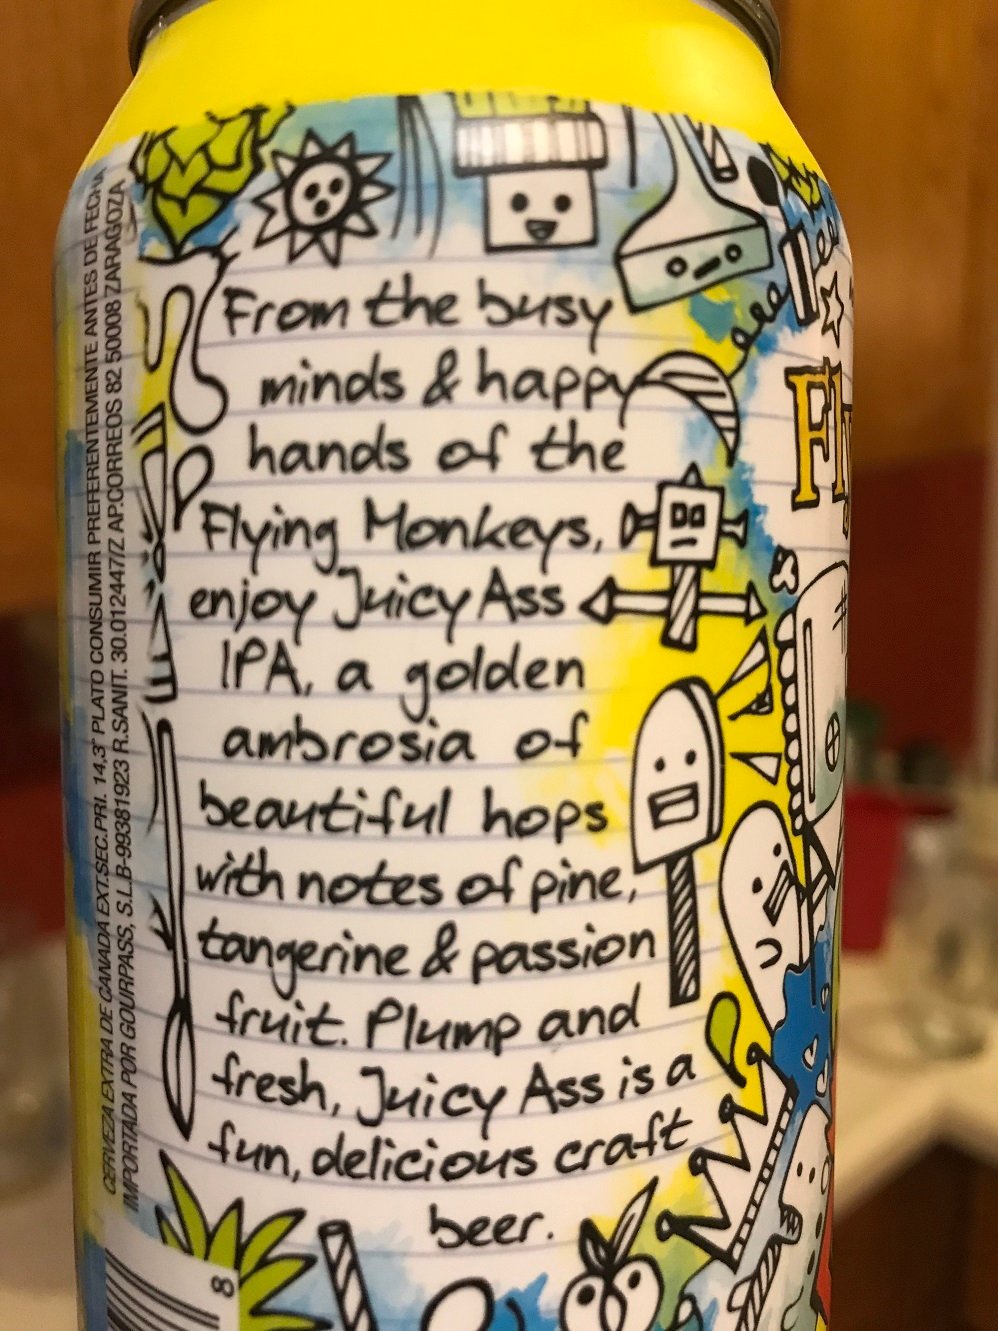 From the busy
minds & happy
hands of the
Flying Monkeys,
enjoy Juicy Ass
IPA, a golden
ambrosia of
beautiful hops
with notes of pine,
tangerine & passion
fruit. Plump and
fresh, Juicy Ass is a
fun, delicious craft
beer.
CERVEZA EXTRA DE CANADA EXT.SEC.PRI. 14,3° PLATO CONSUMIR PREFERENTEMENTE ANTES DE FECHA
IMPORTADA POR GOURPASS, S.L.B-99381923 R.SANIT. 30.012447/Z AP.CORREOS 82 50008 ZARAGOZA
Fly
8